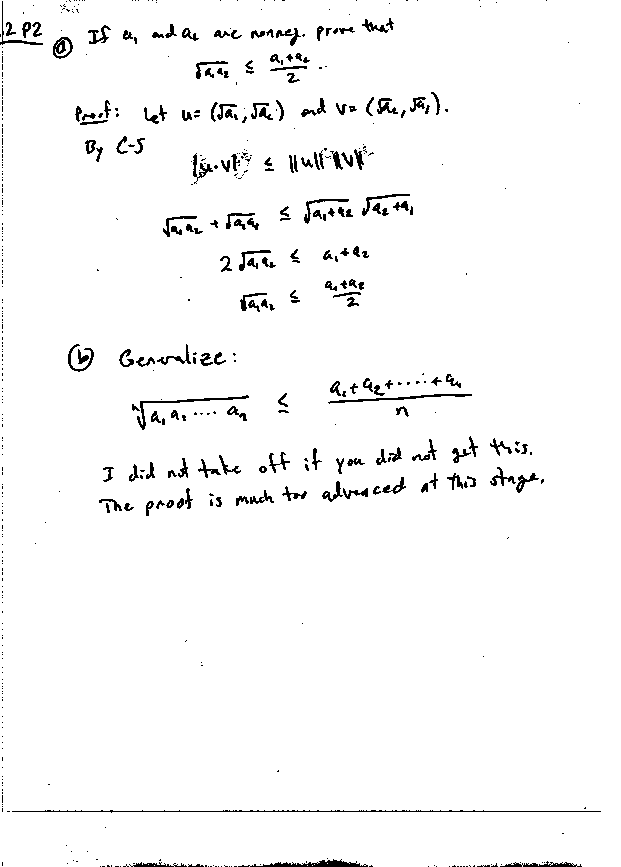 .2 P2
ⓐ If a₁ and a₂ are nonneg. prove that
√a₁a₂ ≤ (a₁+a₂)/2 .
Proof: Let u = (√a₁, √a₂) and v = (√a₂, √a₁).
By C-S
|u·v| ≤ ||u|| ||v||
√a₁a₂ + √a₂a₁ ≤ √a₁+a₂ √a₂+a₁
2√a₁a₂ ≤ a₁+a₂
√a₁a₂ ≤ (a₁+a₂)/2
ⓑ Generalize:
ⁿ√a₁a₂ .... aₙ ≤ (a₁+a₂+....+aₙ)/n
I did not take off if you did not get this.
The proof is much too advanced at this stage.